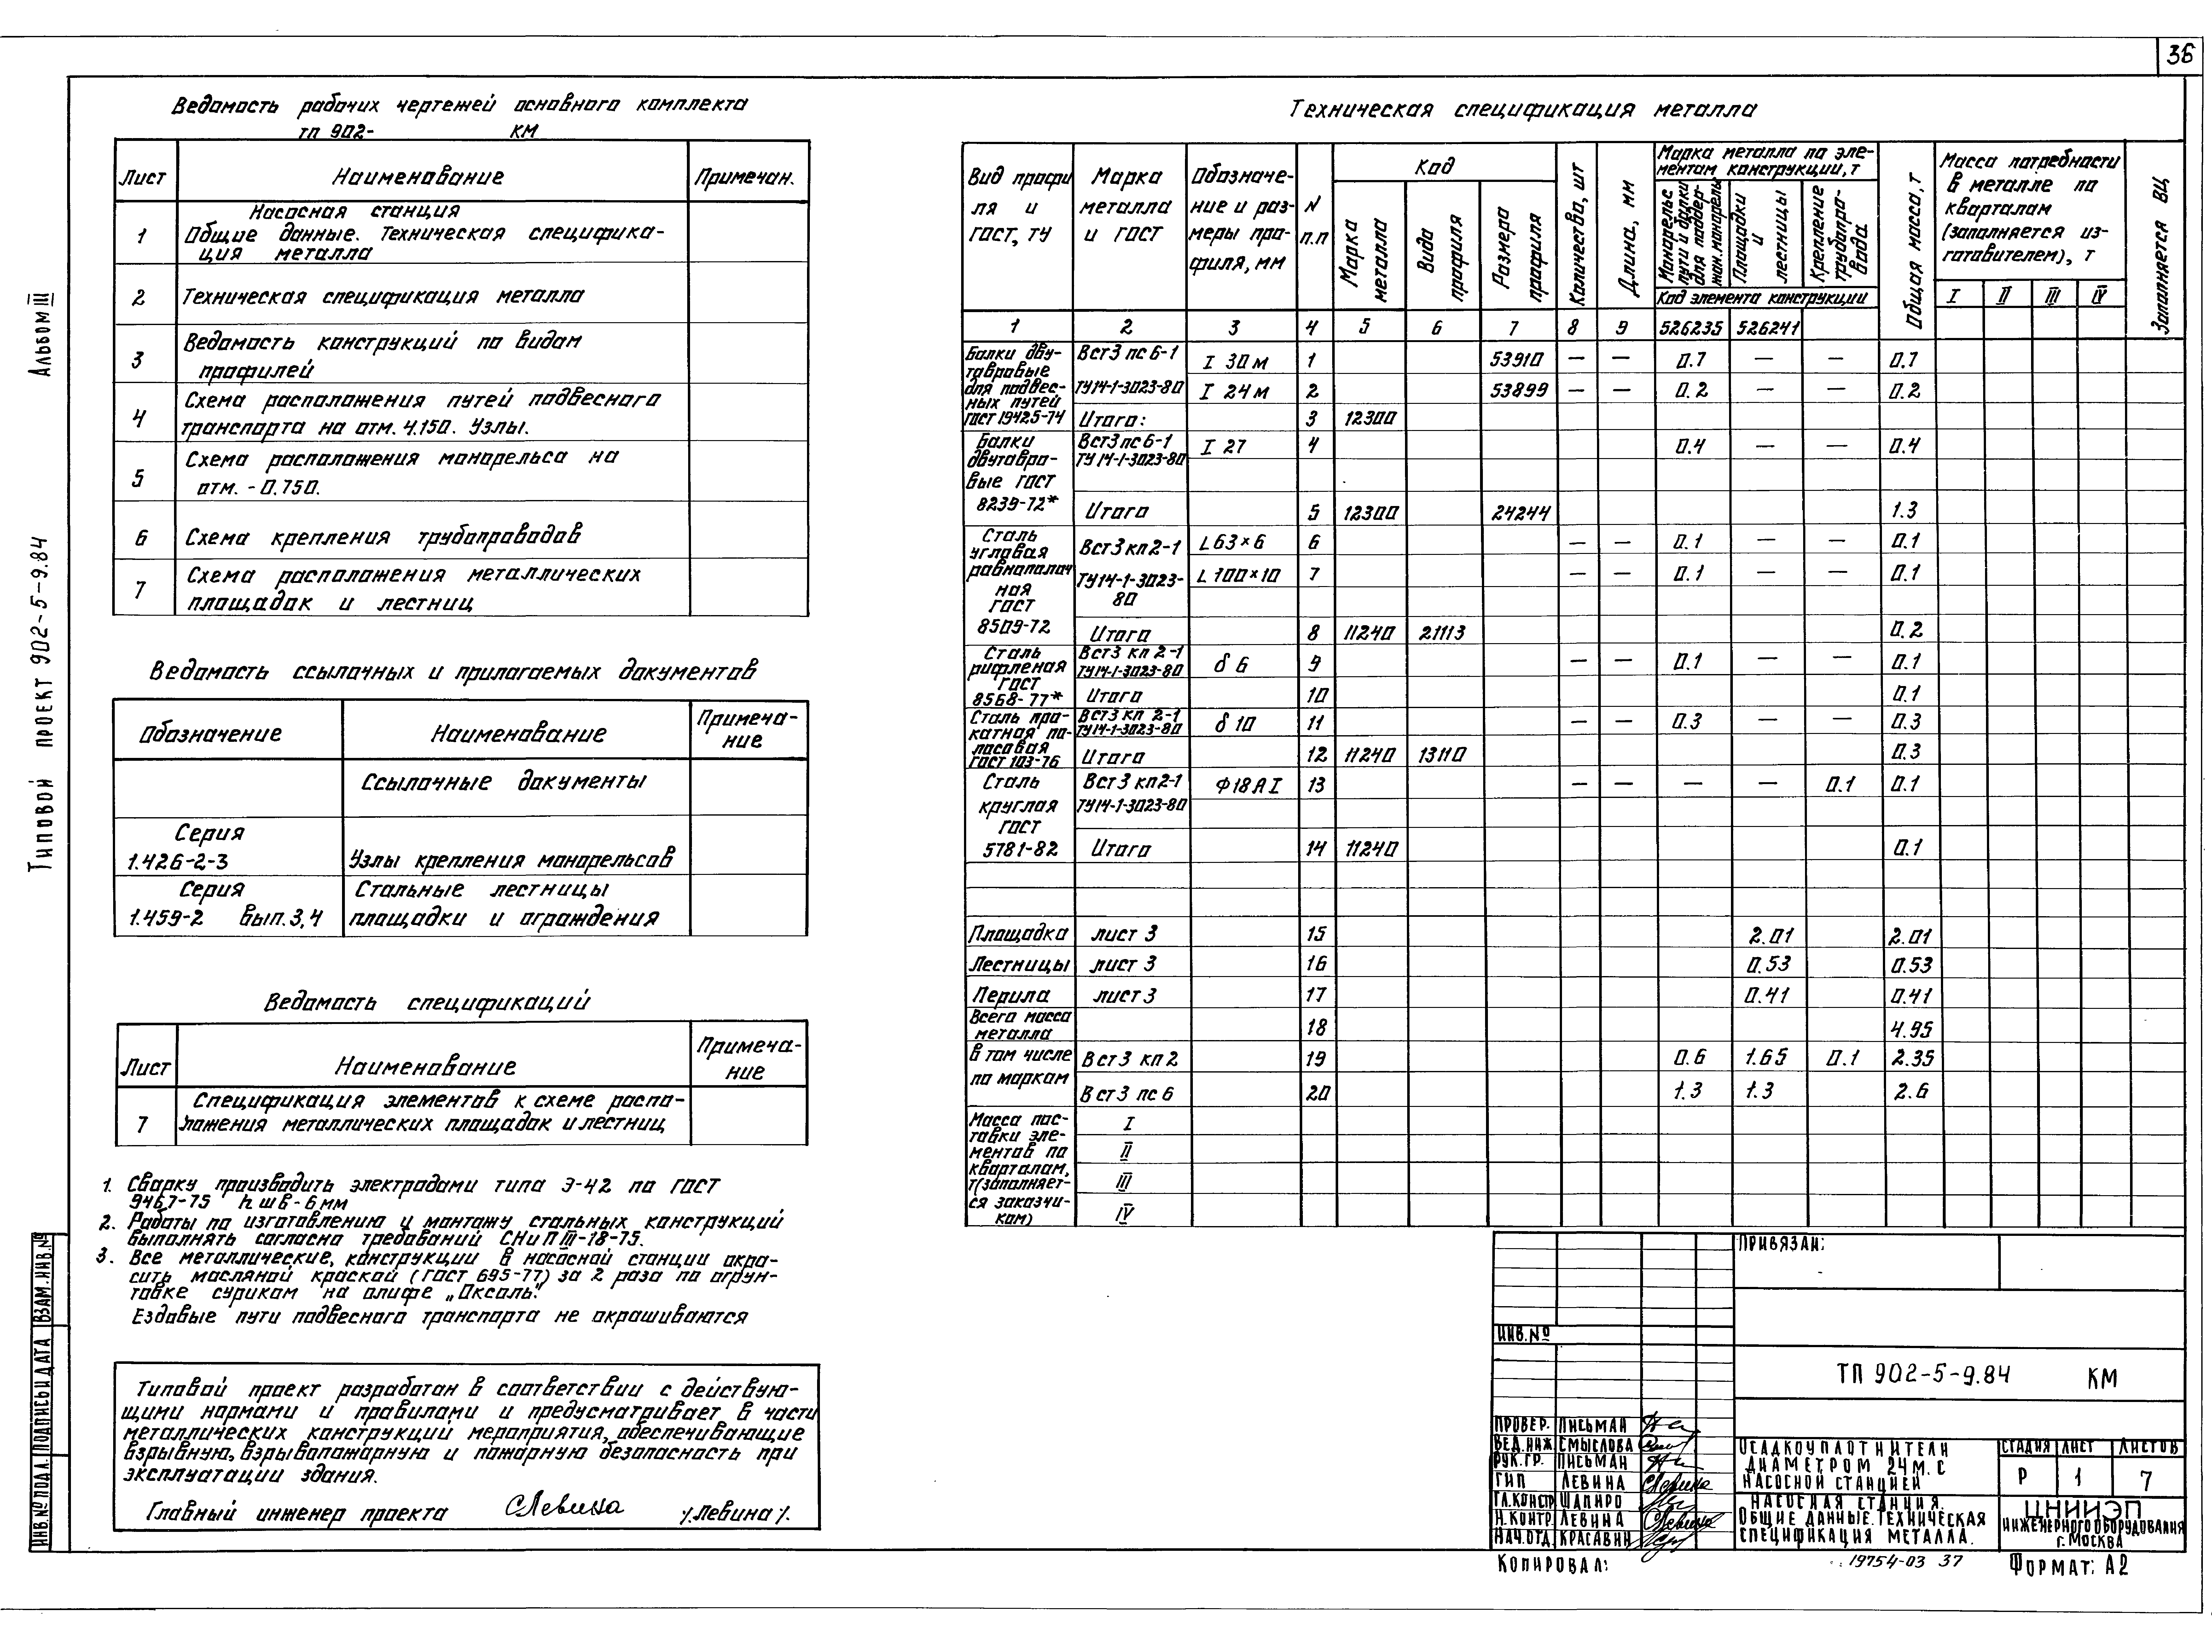 36
Ведомость рабочих чертежей основного комплекта
ТП 902- КМ
Лист Наименование Примечан.
Насосная станция
1 Общие данные. Техническая специфика-
ция металла
2 Техническая спецификация металла
3 Ведомость конструкций по видам
профилей
4 Схема расположения путей подвесного
транспорта на отм. 4.150. Узлы.
5 Схема расположения монорельса на
отм. -0.750.
6 Схема крепления трубопроводов
7 Схема расположения металлических
площадок и лестниц
Ведомость ссылочных и прилагаемых документов
Обозначение Наименование Примеча-
ние
Ссылочные документы
Серия
1.426-2-3 Узлы крепления монорельсов
Серия Стальные лестницы
1.459-2 вып.3,4 площадки и ограждения
Ведомость спецификаций
Лист Наименование Примеча-
ние
Спецификация элементов к схеме распо-
7 ложения металлических площадок и лестниц
1. Сварку производить электродами типа Э-42 по ГОСТ
9467-75 h шв - 6 мм
2. Работы по изготовлению и монтажу стальных конструкций
выполнять согласно требований СНиП III-18-75.
3. Все металлические, конструкции в насосной станции окра-
сить масляной краской (ГОСТ 695-77) за 2 раза по огрун-
товке суриком на олифе „Оксоль".
Ездовые пути подвесного транспорта не окрашиваются
Типовой проект разработан в соответствии с действую-
щими нормами и правилами и предусматривает в части
металлических конструкций мероприятия, обеспечивающие
взрывную, взрывопожарную и пожарную безопасность при
эксплуатации здания.
Главный инженер проекта СЛевина /.Левина/.
Техническая спецификация металла
Вид профи
ля и
ГОСТ, ТУ
Марка
металла
и ГОСТ
Обозначе-
ние и раз-
меры про-
филя, мм
N
п.п
Код
Марка
металла
Вида
профиля
Размера
профиля
Количество, шт
Длина, мм
Марка металла по эле-
ментам конструкции, т
Монорельс
пути и балки
для поддер-
жан. монорельс
Площадки
и
лестницы
Крепление
трубопро-
вода
Код элемента конструкции
Общая масса, т
Масса потребности
в металле по
кварталам
(заполняется из-
готовителем), т
I II III IV
Заполняется ВЦ
1 2 3 4 5 6 7 8 9 526235 526241
Балки дву-
тавровые
для подвес-
ных путей
ГОСТ 19425-74
ВСт3 пс 6-1 I 30 м 1 53910 — — 0.7 — — 0.7
ТУ14-1-3023-80 I 24 м 2 53899 — — 0.2 — — 0.2
Итого: 3 12300
Балки
двутавро-
вые ГОСТ
8239-72*
ВСт3 пс 6-1
ТУ 14-1-3023-80 I 27 4 0.4 — — 0.4
Итого 5 12300 24244 1.3
Сталь
угловая
равнополоч
ная
ГОСТ
8509-72
ВСт3 кп2-1 L 63×6 6 — — 0.1 — — 0.1
ТУ14-1-3023-
80 L 100×10 7 — — 0.1 — — 0.1
Итого 8 11240 21113 0.2
Сталь
рифленая
ГОСТ
8568-77*
ВСт3 кп 2-1
ТУ14-1-3023-80 δ 6 9 — — 0.1 — — 0.1
Итого 10 0.1
Сталь про-
катная по-
лосовая
ГОСТ 103-76
ВСт3 кп 2-1
ТУ14-1-3023-80 δ 10 11 — — 0.3 — — 0.3
Итого 12 11240 13110 0.3
Сталь
круглая
ГОСТ
5781-82
ВСт3 кп2-1
ТУ14-1-3023-80 Ф18 А I 13 — — — — 0.1 0.1
Итого 14 11240 0.1
Площадка лист 3 15 2.01 2.01
Лестницы лист 3 16 0.53 0.53
Перила лист 3 17 0.41 0.41
Всего масса
металла 18 4.95
в том числе ВСт3 кп2 19 0.6 1.65 0.1 2.35
по маркам ВСт3 пс 6 20 1.3 1.3 2.6
Масса пос-
тавки эле-
ментов по
кварталам,
т(заполняет-
ся заказчи-
ком)
I
II
III
IV
ПРИВЯЗАН:
ИНВ. №
ТП 902-5-9.84 КМ
ПРОВЕР. ПИСЬМАН
ВЕД.ИНЖ СМЫСЛОВА
РУК.ГР. ПИСЬМАН
ГИП ЛЕВИНА СЛевина
ГЛ.КОНСТР ШАПИРО
Н.КОНТР. ЛЕВИНА СЛевина
НАЧ.ОТД. КРАСАВИН
ОСАДКОУПЛОТНИТЕЛИ
ДИАМЕТРОМ 24М. С
НАСОСНОЙ СТАНЦИЕЙ
СТАДИЯ ЛИСТ ЛИСТОВ
Р 1 7
НАСОСНАЯ СТАНЦИЯ.
ОБЩИЕ ДАННЫЕ. ТЕХНИЧЕСКАЯ
СПЕЦИФИКАЦИЯ МЕТАЛЛА.
ЦНИИЭП
ИНЖЕНЕРНОГО ОБОРУДОВАНИЯ
г. МОСКВА
КОПИРОВАЛ:
19754-03 37
ФОРМАТ: А2
Типовой проект 902-5-9.84 Альбом III
ИНВ.№ ПОДЛ. ПОДПИСЬ И ДАТА ВЗАМ.ИНВ.№